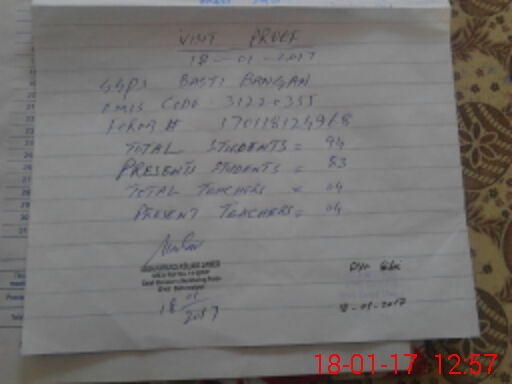 VISIT PROOF
18-01-2017
GGPS BASTI BANGAN
EMIS CODE - 31220355
FORM # 170118124968
TOTAL STUDENTS = 94
PRESENTS STUDENTS = 83
TOTAL TEACHERS = 04
PRESENT TEACHERS = 04
18/01/2017
18-01-2017
18-01-17 12:57